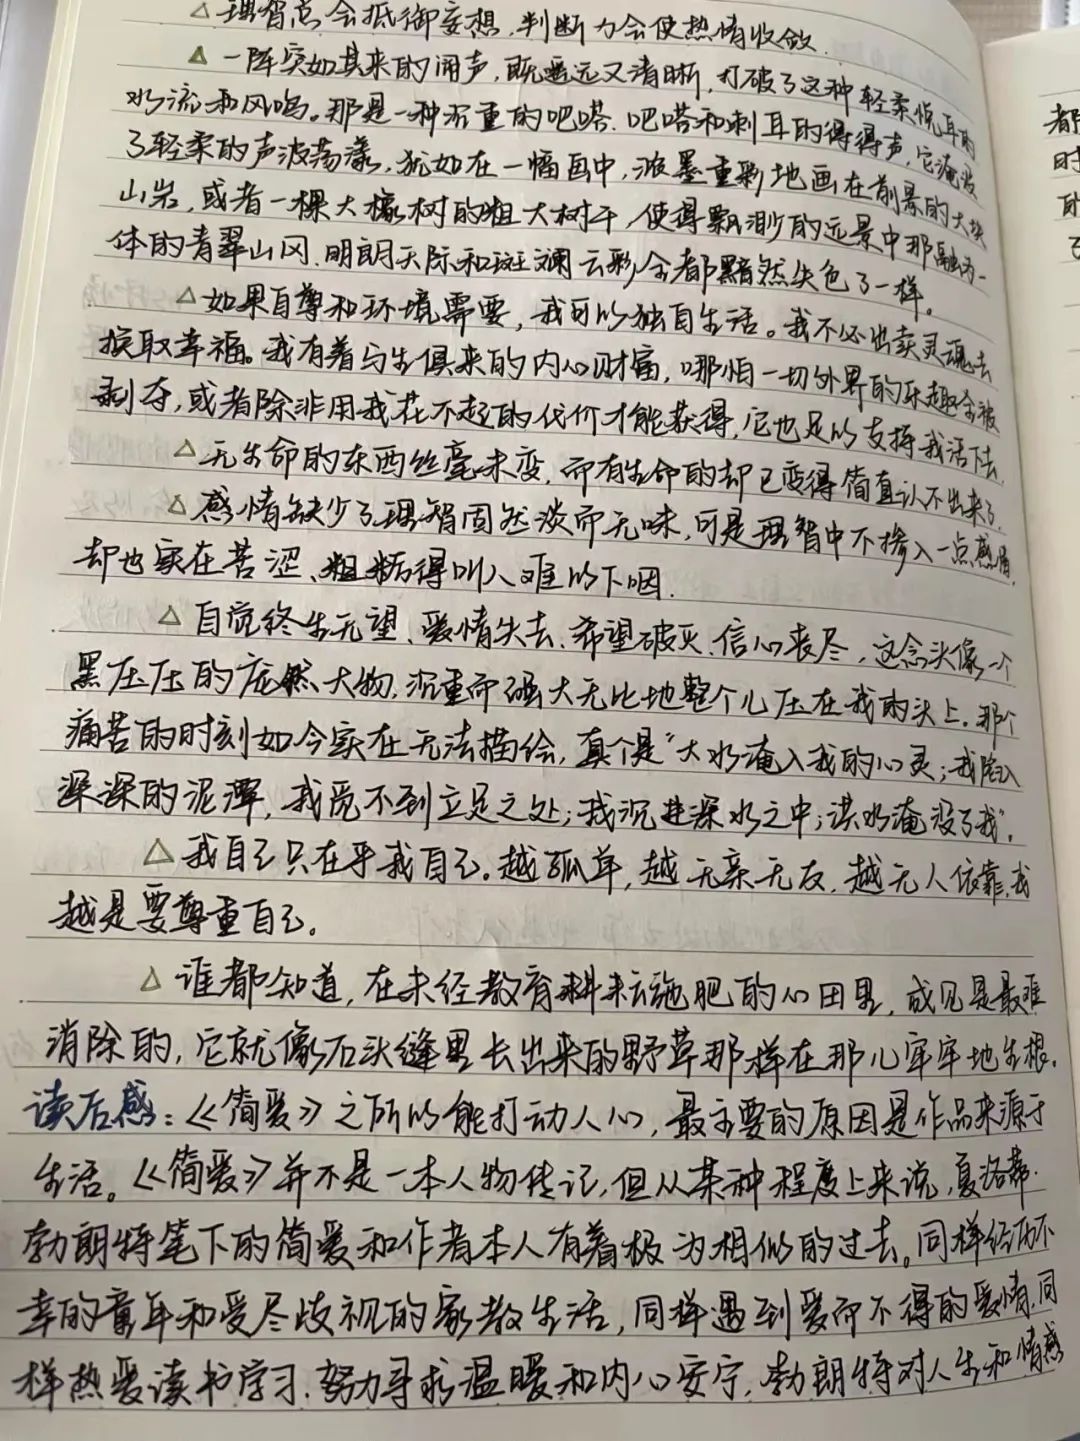 △理智总会抵御妄想,判断力会使热情收敛.
△一阵突如其来的闹声,既遥远又清晰,打破了这种轻柔悦耳的
水流和风鸣。那是一种沉重的吧嗒.吧嗒和刺耳的得得声,它淹没
了轻柔的声波荡漾,犹如在一幅画中,浓墨重彩地画在前景的大块
山岩,或者一棵大橡树的粗大树干,使得飘渺的远景中那融为一
体的青翠山冈.明朗天际和斑斓云彩全都黯然失色了一样。
△如果自尊和环境需要,我可以独自生活。我不必出卖灵魂去
换取幸福。我有着与生俱来的内心财富,哪怕一切外界的乐趣全被
剥夺,或者除非用我花不起的代价才能获得,它也足以支持我活下去.
△无生命的东西丝毫未变,而有生命的却已变得简直认不出来了.
△感情缺少了理智固然淡而无味,可是理智中不掺入一点感情,
却也实在苦涩、粗粝得叫人难以下咽.
△自觉终生无望、爱情失去.希望破灭.信心丧尽,这念头像一个
黑压压的庞然大物,沉重而强大无比地整个儿压在我的头上.那个
痛苦的时刻如今实在无法描绘,真个是“大水淹入我的心灵;我陷入
深深的泥潭,我觅不到立足之处;我沉进深水之中;洪水淹没了我”.
△我自己只在乎我自己。越孤单,越无亲无友,越无人依靠,我
越是要尊重自己。
△谁都知道,在未经教育耕耘施肥的心田里,成见是最难
消除的,它就像石头缝里长出来的野草那样在那儿牢牢地生根.
读后感:《简爱》之所以能打动人心,最主要的原因是作品来源于
生活。《简爱》并不是一本人物传记,但从某种程度上来说,夏洛蒂·
勃朗特笔下的简爱和作者本人有着极为相似的过去。同样经历不
幸的童年和受尽歧视的家教生活,同样遇到爱而不得的爱情,同
样热爱读书学习.努力寻求温暖和内心安宁,勃朗特对人生和情感
都
时